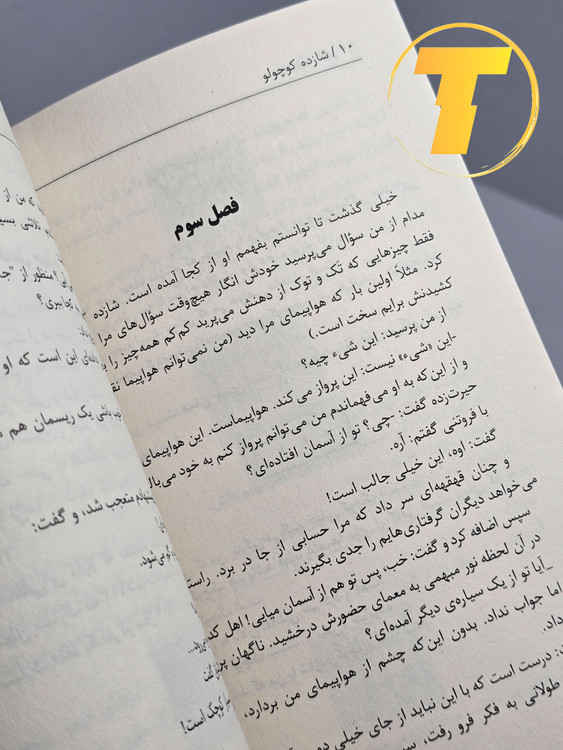 ۱۰ / شازده کوچولو
T
فصل سوم
خیلی گذشت تا توانستم بفهمم او از کجا آمده است. شازده
مدام از من سؤال می‌پرسید خودش انگار هیچ‌وقت سؤال‌های مرا
فقط چیزهایی که تَک و توک از دهنش می‌پرید کم‌کم همه‌چیز را
کرد. مثلاً اولین بار که هواپیمای مرا دید (من نمی‌توانم هواپیما
کشیدنش برایم سخت است.)
از من پرسید: این شیء چیه؟
-این «شیء» نیست: این پرواز می کند. هواپیماست. این هواپیمای
و از این که به او می‌فهماندم من می‌توانم پرواز کنم به خود می‌بالیدم
حیرت‌زده گفت: -چی؟ تو از آسمان افتاده‌ای؟
با فروتنی گفتم: آره.
گفت: اوه، این خیلی جالب است!
و چنان قهقهه‌ای سر داد که مرا حسابی از جا در برد. راست
می‌خواهد دیگران گرفتاری‌هایم را جدی بگیرند.
سپس اضافه کرد و گفت: خب، پس تو هم از آسمان میایی! اهل
در آن لحظه نور مبهمی به معمای حضورش درخشید. ناگهان
_آیا تو از یک سیاره‌ی دیگر آمده‌ای؟
اما جواب نداد. بدون این‌که چشم از هواپیمای من بردارد،
داد.
درست است که با این نباید از جای خیلی
طولانی به فکر فرو رفت،
که من از
تلاشی
منظور از
کجا ببری؟
این است که او
یک ریسمان هم
متعجب شد، و گفت:
می‌شود.
گفت
کوچک است!